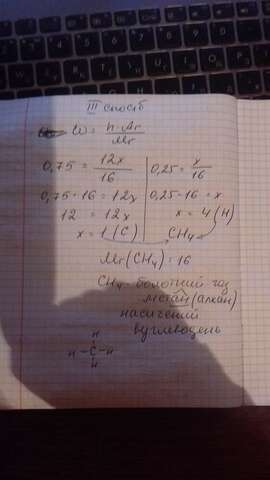 III спосіб
W = n·Ar/Mr
0,75 = 12x/16
0,75·16 = 12x
12 = 12x
x = 1 (C)
0,25 = x/16
0,25·16 = x
x = 4 (H)
CH₄
Mr(CH₄) = 16
CH₄ - болотний газ
метан (алкан)
насичений
вуглеводень
H
H-C-H
H